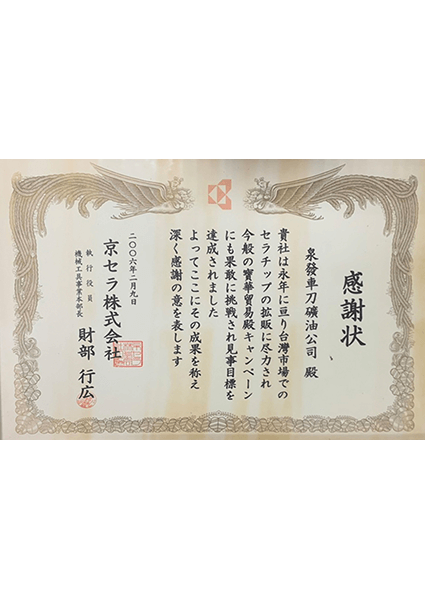 感謝状
泉發車刀礦油公司 殿
貴社は永年に亘り台灣市場での
セラチップの拡販に尽力され
今般の寶華貿易殿キャンペーン
にも果敢に挑戦され見事目標を
達成されました
よってここにその成果を称え
深く感謝の意を表します
二〇〇六年二月九日
京セラ株式会社
執行役員
機械工具事業本部長
財部 行広